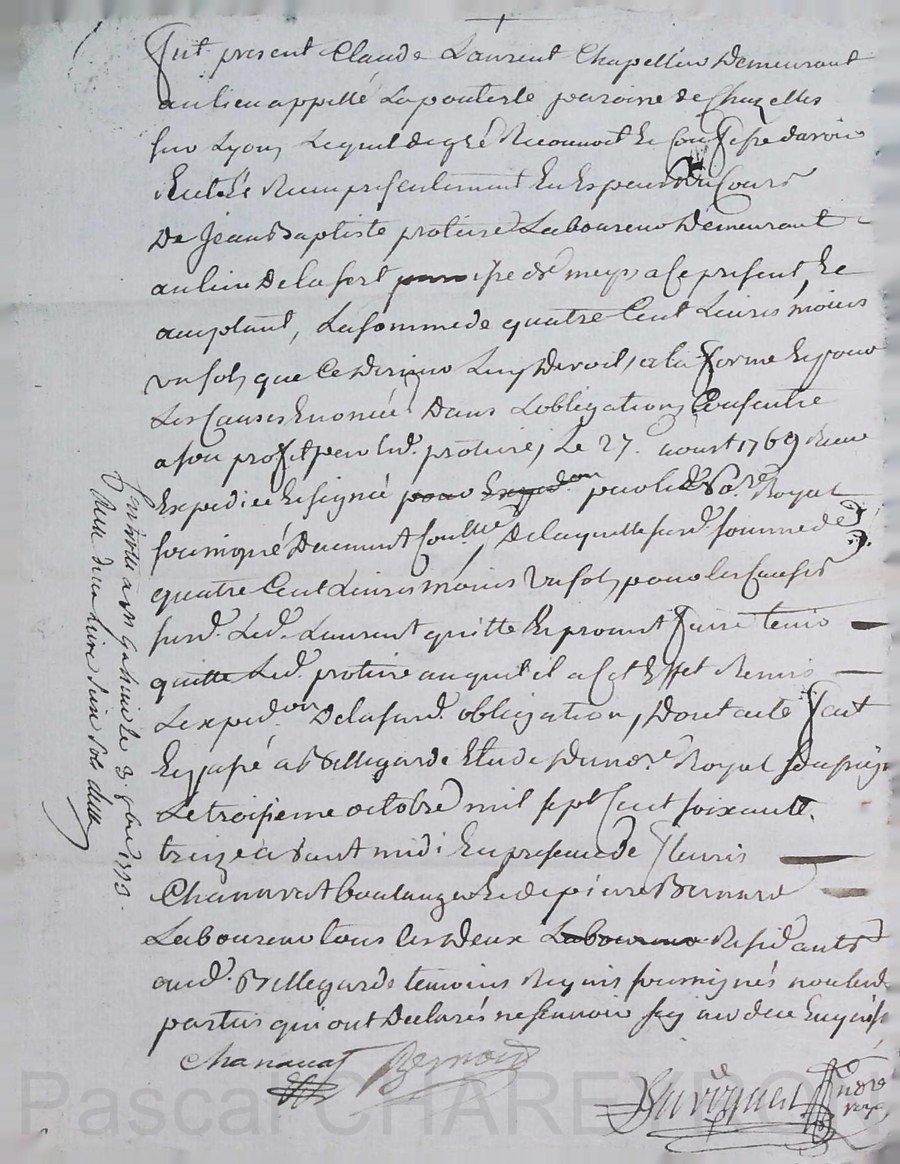 fut present Claude Laurent Chapellier Demeurant
au lieu appellé Lapouterle paroisse de Chazelles
sur Lyon, Lequel de gré Reconnoit et Confesse d'avoir
Eu et Reçu presentement En Espeuses du Cours
De Jean Baptiste protiere Laboureur Demeurant
au lieu De la fort parroisse de meys, a ce present Et
acceptant, La somme de quatre Cent Livres moins
un sol, que Ce Dernier Luy Devoit, a la forme Et pour
Les Causes Enoncées Dans L'obligation, Consentie
a son profit par led. protiere, Le 27. aoust 1769 Reçue
Expediée Et signée pour Exped.on par led No.re Royal
soussigné Duement Con.llée, De laquelle susd. somme de
quatre Cent Livres moins un sol, pour les Causes
susd. Led. Laurent quitte Et promet faire tenir
quitte Led. protiere auquel il a Cet Effet Remis
L'exped.on De la susd. obligation, Dont acte fait
Et passé a Bellegarde Etude Du no.re Royal soussigné
Le troisieme octobre mil sept Cent soixante
treize avant midi En presence de fleuris
Chanavat boulanger Et de pierre Bernard
Laboureur tous les Deux Laboureur Residants
aud. Bellegarde temoins Requis soussignés non les d.
parties qui ont Declarés ne sçavoir signer de ce Enquis
Chanavat Bernard
Duvignest
no.re
roy
Controllé a St Galmier le 8. 8bre 1773.
Reçu
Pascal CHAREYRON